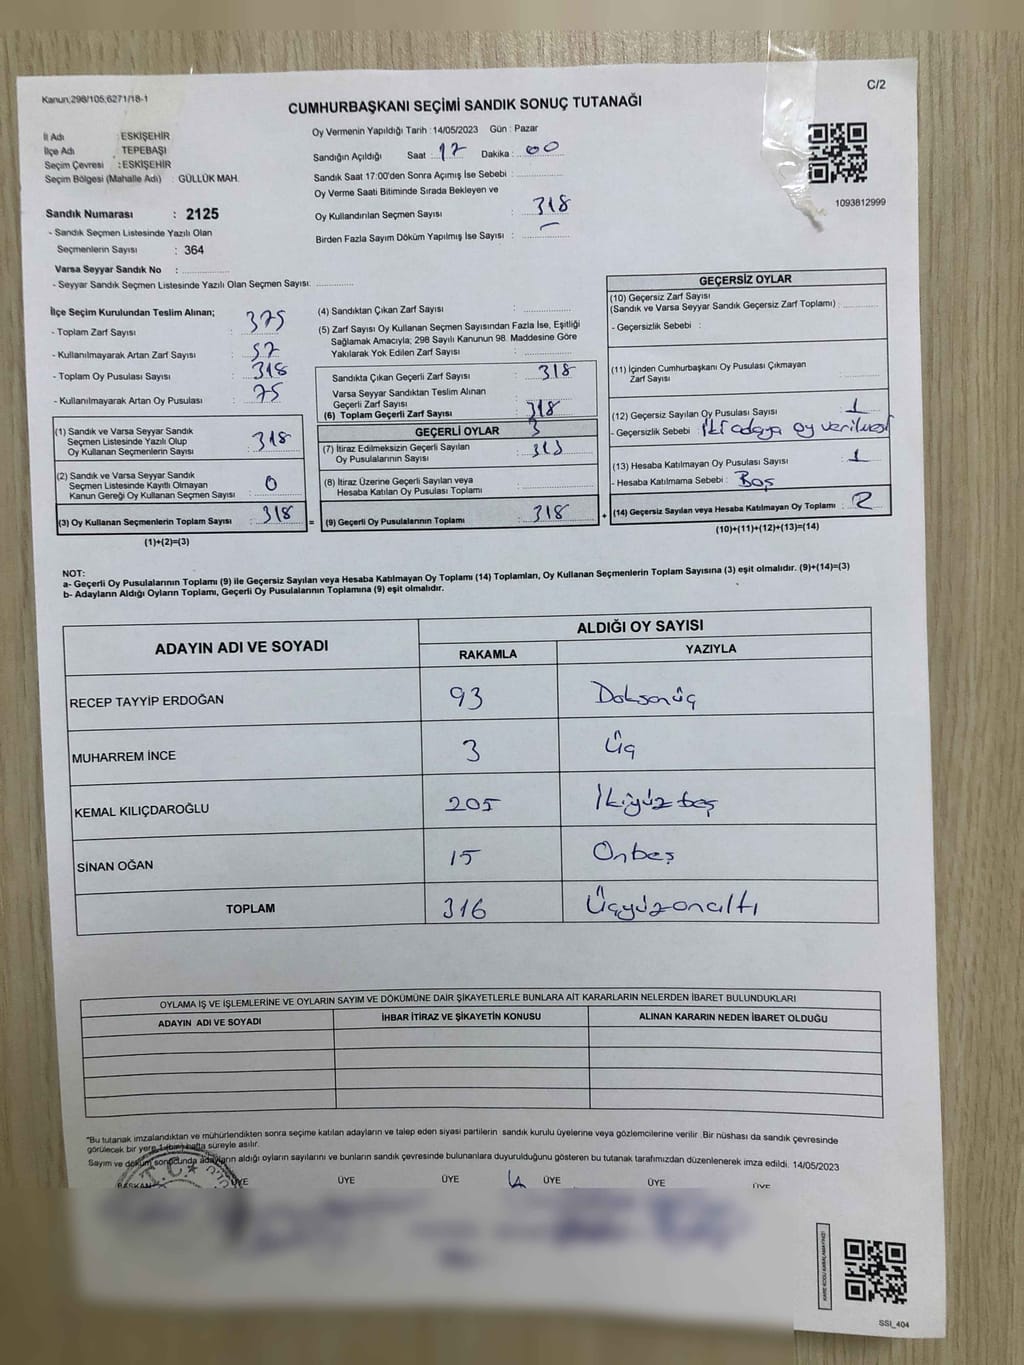 Kanun;298/105;6271/18-1
C/2
CUMHURBAŞKANI SEÇİMİ SANDIK SONUÇ TUTANAĞI
İl Adı : ESKİŞEHİR
İlçe Adı : TEPEBAŞI
Seçim Çevresi : ESKİŞEHİR
Seçim Bölgesi (Mahalle Adı) : GÜLLÜK MAH.
Sandık Numarası : 2125
- Sandık Seçmen Listesinde Yazılı Olan
Seçmenlerin Sayısı : 364
Varsa Seyyar Sandık No :
- Seyyar Sandık Seçmen Listesinde Yazılı Olan Seçmen Sayısı:
Oy Vermenin Yapıldığı Tarih : 14/05/2023 Gün : Pazar
Sandığın Açıldığı Saat : 17 Dakika : 00
Sandık Saat 17:00'den Sonra Açımış İse Sebebi :
Oy Verme Saati Bitiminde Sırada Bekleyen ve
Oy Kullandırılan Seçmen Sayısı : 318
Birden Fazla Sayım Döküm Yapılmış İse Sayısı : –
1093812999
İlçe Seçim Kurulundan Teslim Alınan;
- Toplam Zarf Sayısı : 375
- Kullanılmayarak Artan Zarf Sayısı : 57
- Toplam Oy Pusulası Sayısı : 318
- Kullanılmayarak Artan Oy Pusulası : 75
(1) Sandık ve Varsa Seyyar Sandık
Seçmen Listesinde Yazılı Olup
Oy Kullanan Seçmenlerin Sayısı : 318
(2) Sandık ve Varsa Seyyar Sandık
Seçmen Listesinde Kayıtlı Olmayan
Kanun Gereği Oy Kullanan Seçmen Sayısı : 0
(3) Oy Kullanan Seçmenlerin Toplam Sayısı : 318 =
(1)+(2)=(3)
(4) Sandıktan Çıkan Zarf Sayısı :
(5) Zarf Sayısı Oy Kullanan Seçmen Sayısından Fazla İse, Eşitliği
Sağlamak Amacıyla; 298 Sayılı Kanunun 98. Maddesine Göre
Yakılarak Yok Edilen Zarf Sayısı :
Sandıkta Çıkan Geçerli Zarf Sayısı : 318
Varsa Seyyar Sandıktan Teslim Alınan
Geçerli Zarf Sayısı :
(6) Toplam Geçerli Zarf Sayısı : 318
GEÇERLİ OYLAR
(7) İtiraz Edilmeksizin Geçerli Sayılan
Oy Pusulalarının Sayısı :
(8) İtiraz Üzerine Geçerli Sayılan veya
Hesaba Katılan Oy Pusulası Toplamı :
(9) Geçerli Oy Pusulalarının Toplamı : 318 +
GEÇERSİZ OYLAR
(10) Geçersiz Zarf Sayısı
(Sandık ve Varsa Seyyar Sandık Geçersiz Zarf Toplamı) :
- Geçersizlik Sebebi :
(11) İçinden Cumhurbaşkanı Oy Pusulası Çıkmayan
Zarf Sayısı :
(12) Geçersiz Sayılan Oy Pusulası Sayısı : 1
- Geçersizlik Sebebi : İki adaya oy verilmesi
(13) Hesaba Katılmayan Oy Pusulası Sayısı : 1
- Hesaba Katılmama Sebebi : Boş
(14) Geçersiz Sayılan veya Hesaba Katılmayan Oy Toplamı : 2
(10)+(11)+(12)+(13)=(14)
NOT:
a- Geçerli Oy Pusulalarının Toplamı (9) ile Geçersiz Sayılan veya Hesaba Katılmayan Oy Toplamı (14) Toplamları, Oy Kullanan Seçmenlerin Toplam Sayısına (3) eşit olmalıdır. (9)+(14)=(3)
b- Adayların Aldığı Oyların Toplamı, Geçerli Oy Pusulalarının Toplamına (9) eşit olmalıdır.
ADAYIN ADI VE SOYADI
ALDIĞI OY SAYISI
RAKAMLA YAZIYLA
RECEP TAYYİP ERDOĞAN 93 Doksanüç
MUHARREM İNCE 3 Üç
KEMAL KILIÇDAROĞLU 205 İkiyüzbeş
SİNAN OĞAN 15 Onbeş
TOPLAM 316 Üçyüzonaltı
OYLAMA İŞ VE İŞLEMLERİNE VE OYLARIN SAYIM VE DÖKÜMÜNE DAİR ŞİKAYETLERLE BUNLARA AİT KARARLARIN NELERDEN İBARET BULUNDUKLARI
ADAYIN ADI VE SOYADI İHBAR İTİRAZ VE ŞİKAYETİN KONUSU ALINAN KARARIN NEDEN İBARET OLDUĞU
*Bu tutanak imzalandıktan ve mühürlendikten sonra seçime katılan adayların ve talep eden siyasi partilerin sandık kurulu üyelerine veya gözlemcilerine verilir .Bir nüshası da sandık çevresinde
görülecek bir yere 1 (bir) hafta süreyle asılır.
Sayım ve döküm sonucunda adayların aldığı oyların sayılarını ve bunların sandık çevresinde bulunanlara duyurulduğunu gösteren bu tutanak tarafımızdan düzenlenerek imza edildi. 14/05/2023
T.C.
BAŞKAN ÜYE ÜYE ÜYE ÜYE ÜYE ÜYE
SSI_404